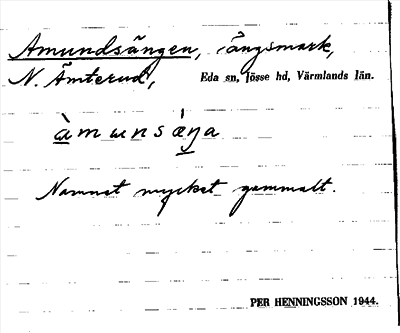 Amundsängen, ängsmark,
N. Ämterud, Eda sn, Jösse hd, Värmlands län.
àmɯnsæ̀ŋa
Namnet mycket gammalt.
PER HENNINGSSON 1944.